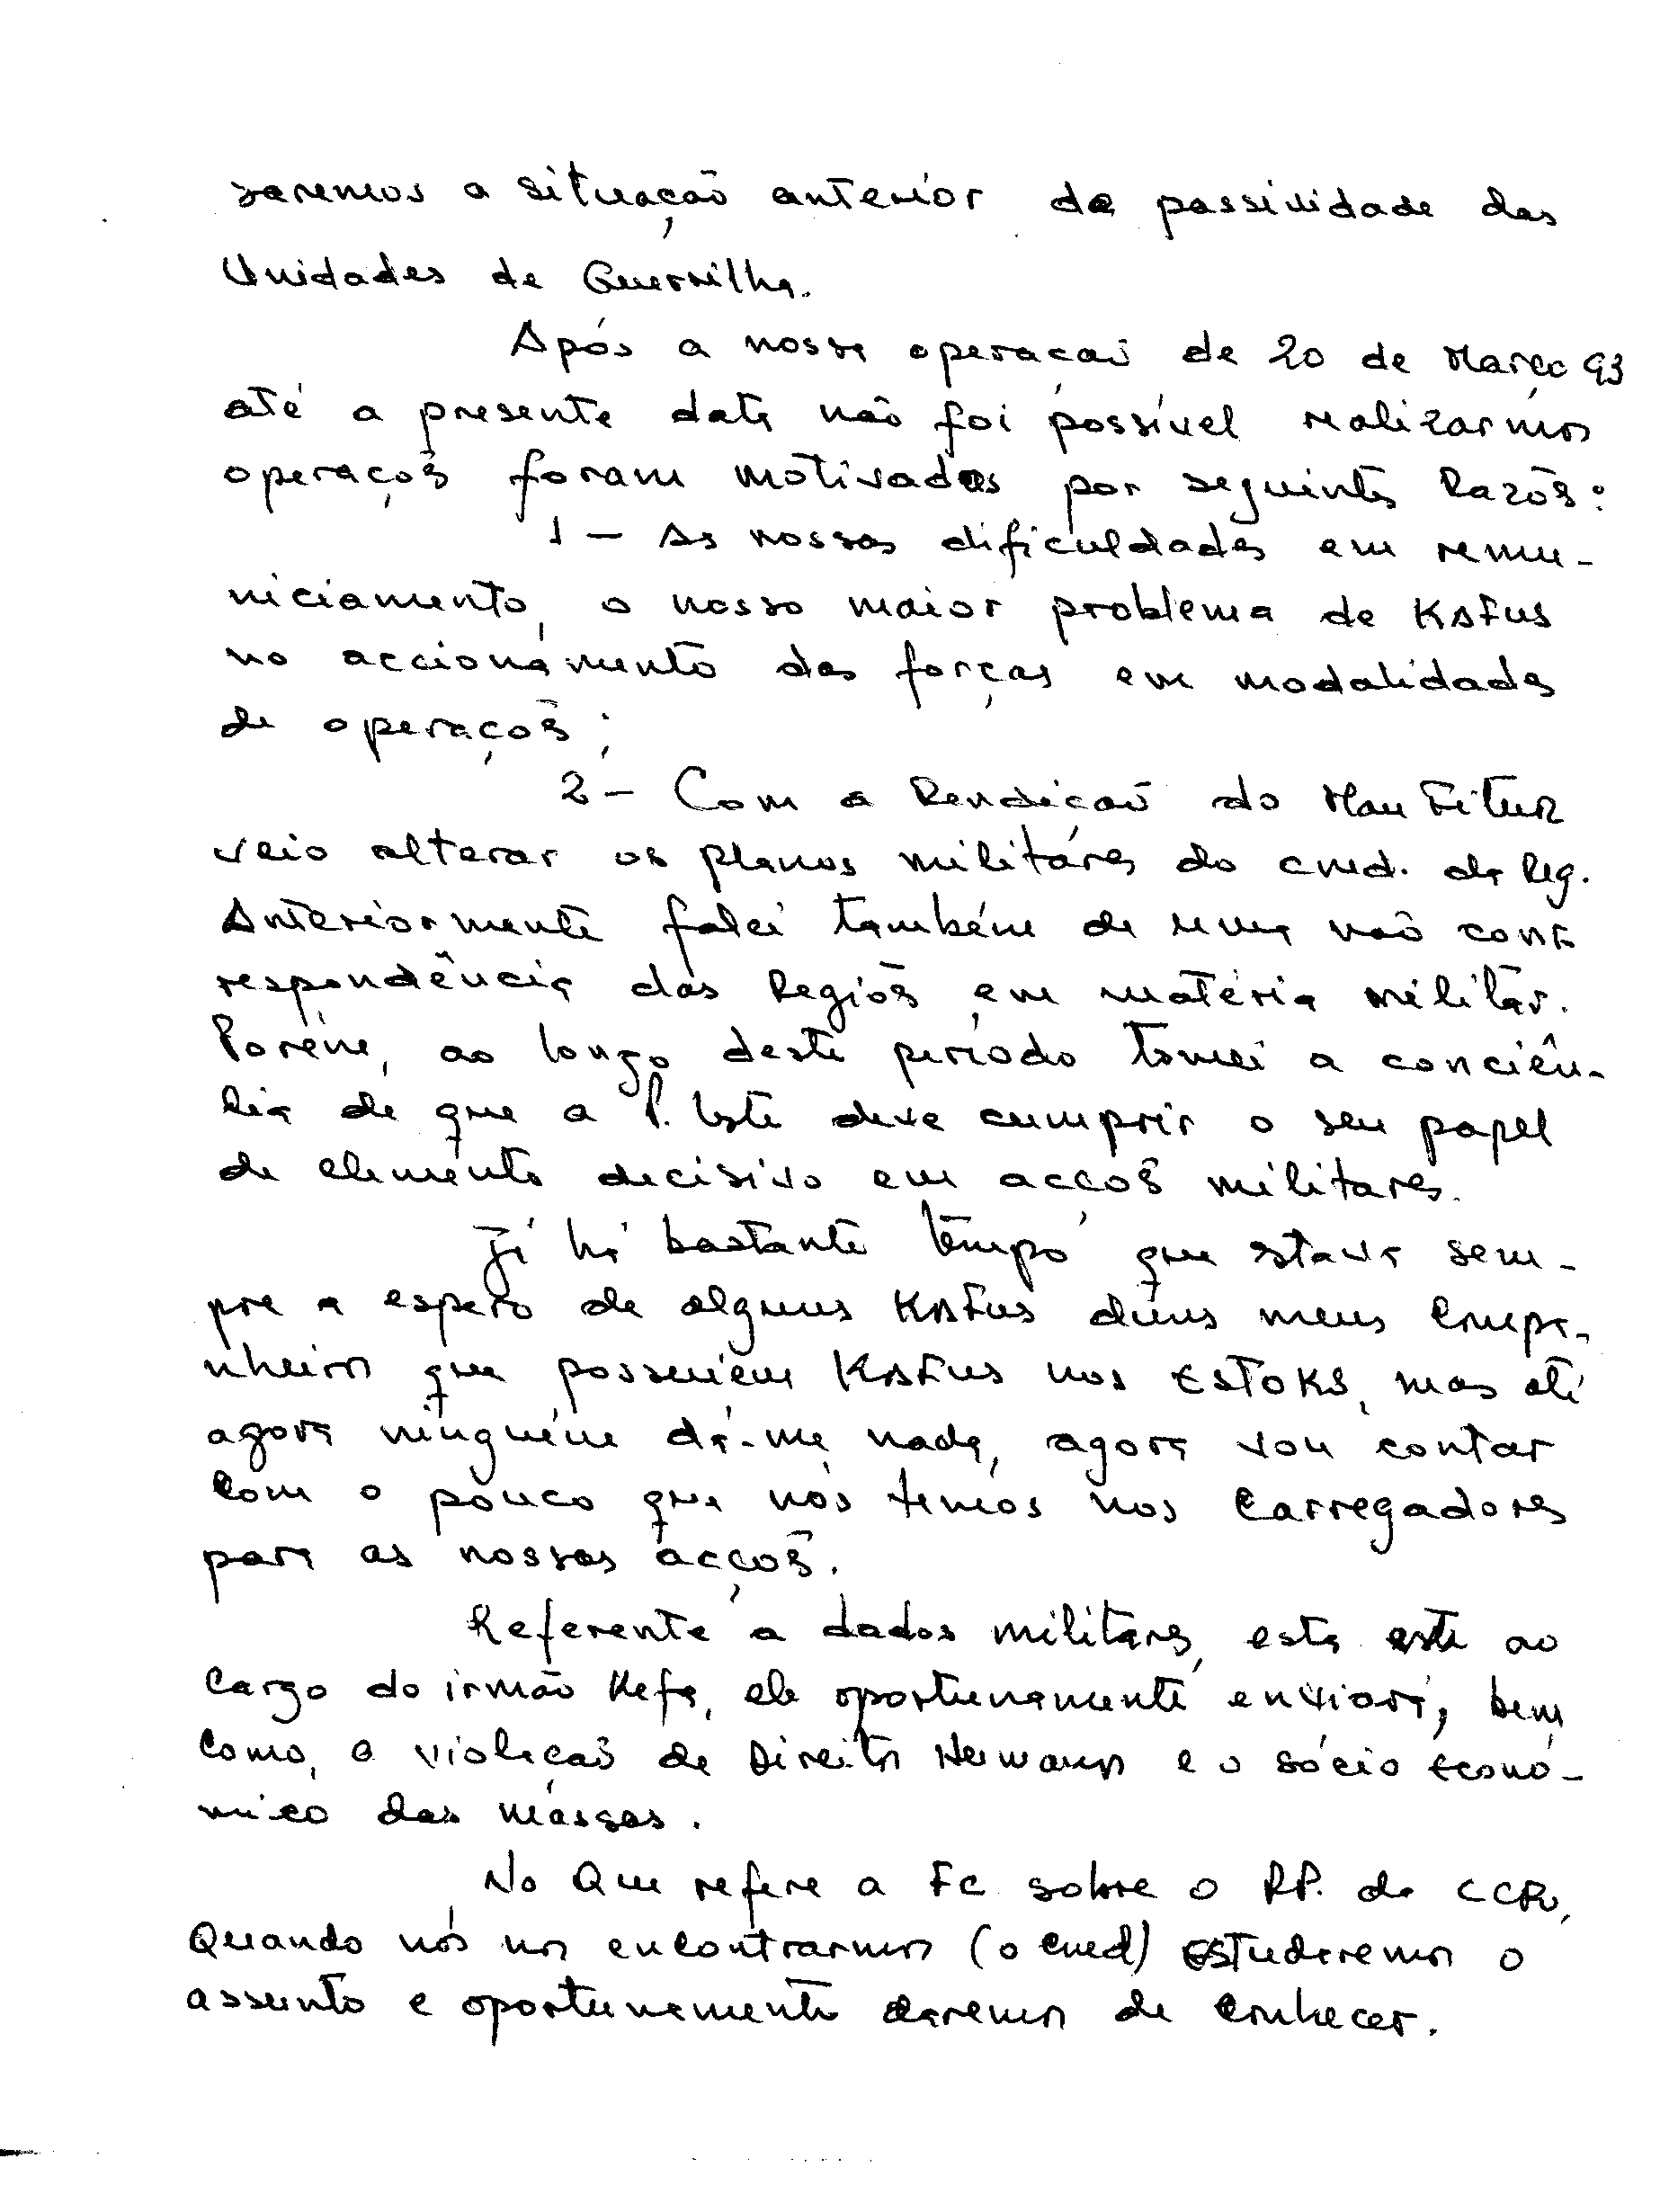 saremos a situação anterior de passividade das
Unidades de Guerrilha.
Após a nossa operacaõ de 20 de Março 93
até a presente data não foi possível realizarmos
operações foram motivados por seguintes Razões:
1 - As nossas dificuldades em remu-
niciamento, o nosso maior problema de KAFUS
no accionamento das forças em modalidades
de operações;
2 - Com a Rendicaõ do Mau Fitun
veio alterar os planos militáres do cmd. da Reg.
Anteriormente falei também de uma não corr
respondência das Regiões em matéria militar.
Porém, ao longo deste período tomei a conciên-
cia de que a P. leste deve cumprir o seu papel
de elemento decisivo em accões militares.
Já há bastante tempo que estava sem-
pre a espera de alguns KAFUS duns meus Compa-
nheiros que possuiem KAFUS nos ESTOKS, mas até
agora ninguém dá-me nada, agora vou contar
com o pouco que nós temos nos Carregadores
para as nossas acções.
Referente a dados militares, esta este ao
cargo do irmão Kefa, ele oportunamente enviará, bem
como, a violeçaõ de Direitos Humanos e o sócio econó-
mico das massas.
No Que refere a FC sobre o RP. do CCR,
Quando nós nos encontrarmos (o Cmd) estuderemos o
assunto e oportunamente daremos de conhecer.